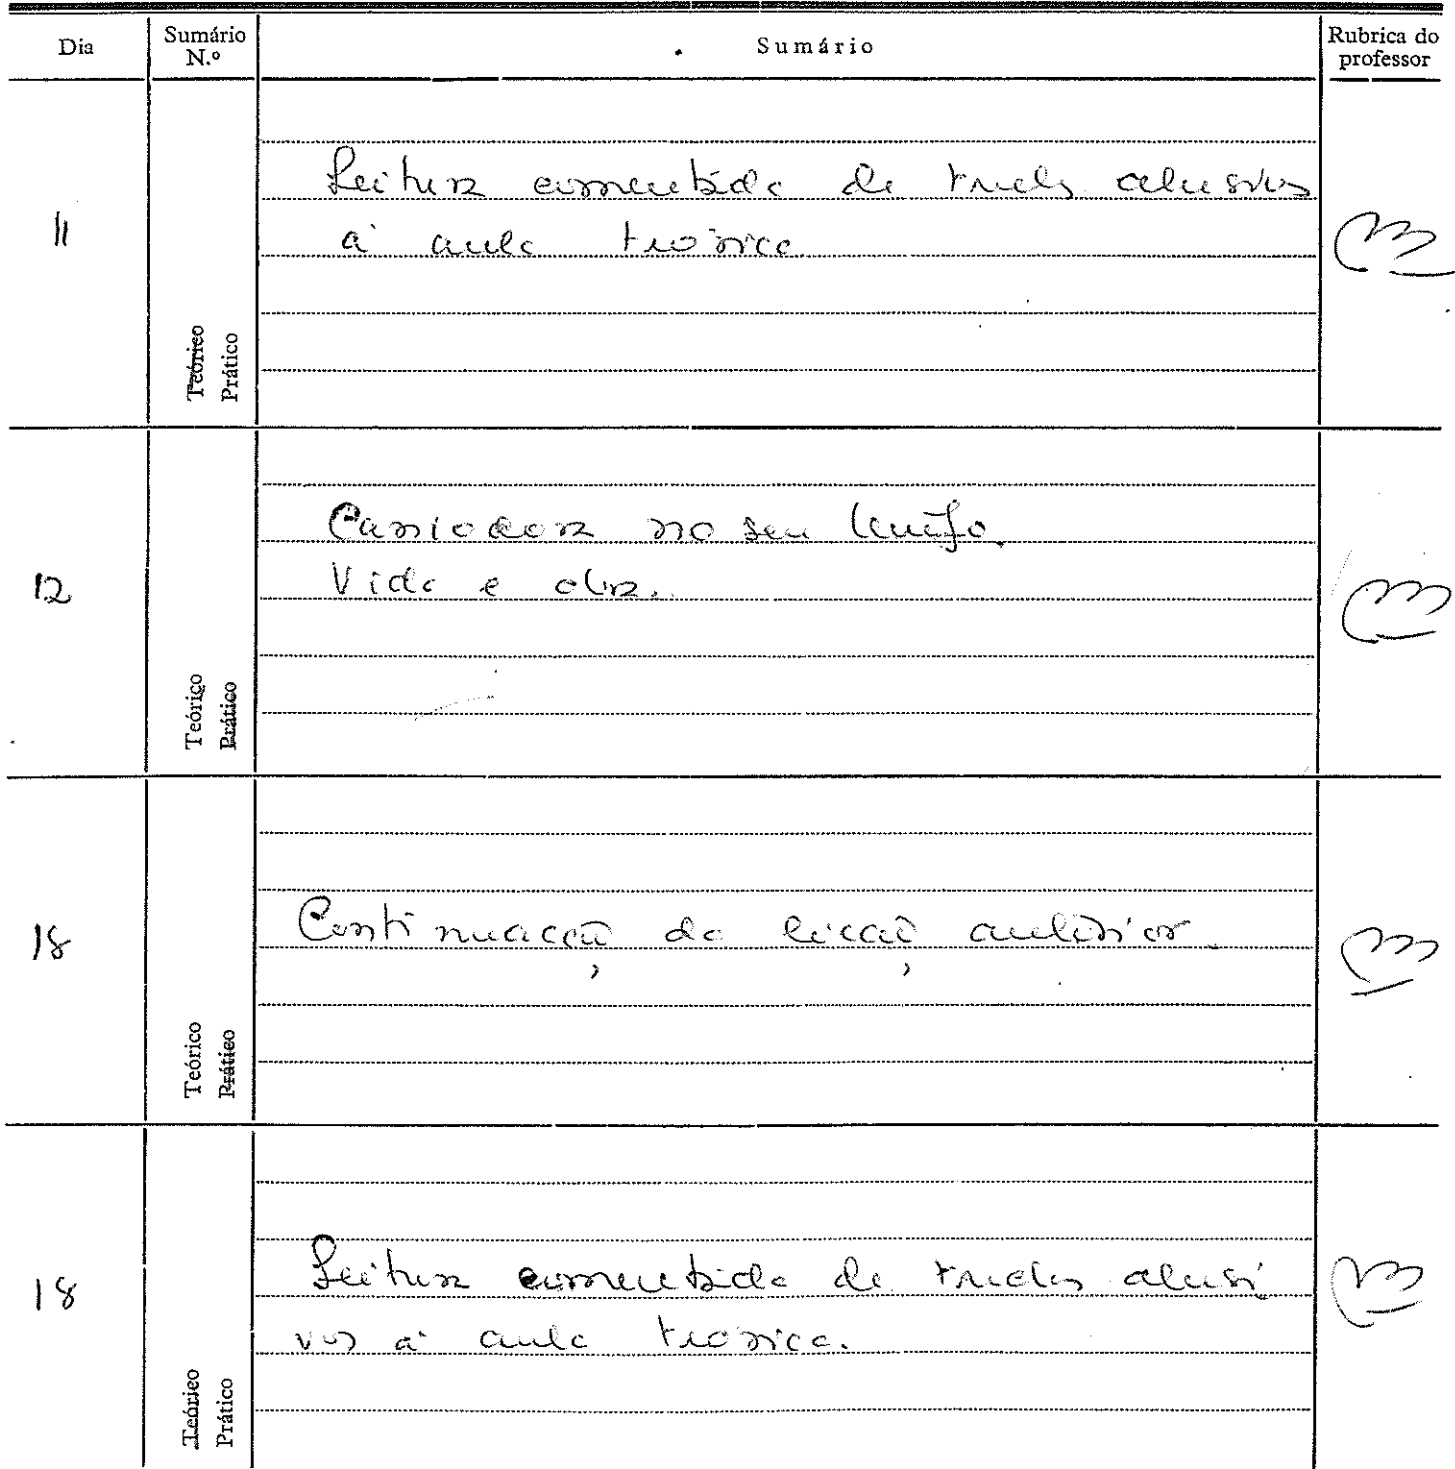 Dia
Sumário N.º
Sumário
Rubrica do professor
11
Teórico
Prático
Leitura comentada de trechos alusivos
à aula teórica
12
Teórico
Prático
Cassiodoro no seu tempo.
Vida e obra.
18
Teórico
Prático
Continuação da lição anterior.
18
Teórico
Prático
Leitura comentada de trechos alusi
vos à aula teórica.